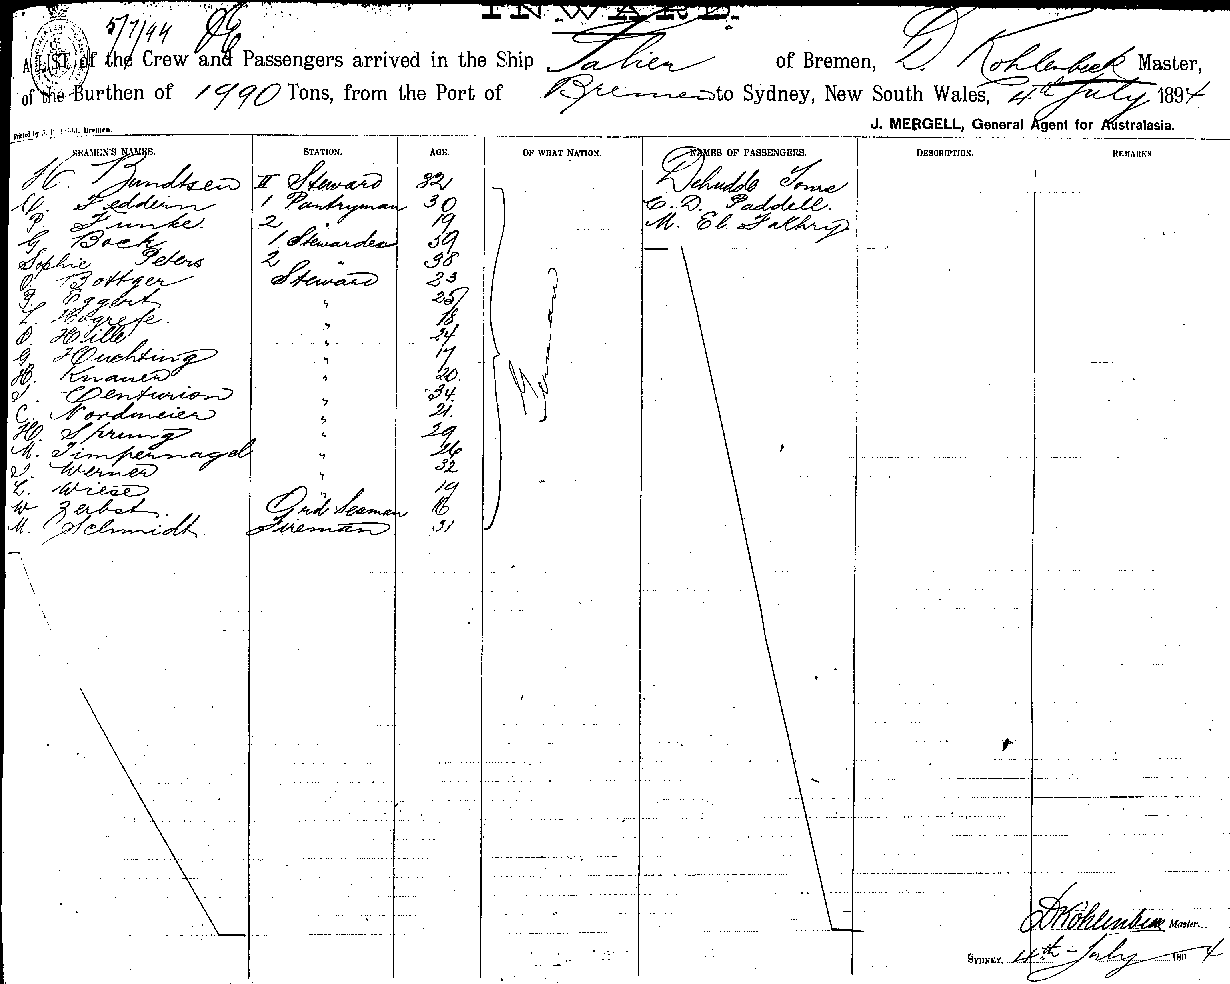 INWARD.
5/7/94
A LIST of the Crew and Passengers arrived in the Ship Salier of Bremen, D. Kohlenbeck Master,
of the Burthen of 1990 Tons, from the Port of Bremen to Sydney, New South Wales, 4th July 1894
J. MERGELL, General Agent for Australasia.
SEAMEN'S NAMES. STATION. AGE. OF WHAT NATION. NAMES OF PASSENGERS. DESCRIPTION. REMARKS
H. Bundtsen II Steward 32 Dchudds Some
Feddern 1 Pantryman 30 C. D. Paddell.
P. Funke. 2 " 19 M. El. Fakhry
G Bock 1 Stewardess 39
Sophie Peters 2 " 38
O. Bottger Steward 23
Eggert " 25
L. Hogrefe. " 18
O. Hille " 24
G. Huchting " 17
H. Knauer " 20
Centurion " 34
C. Nordmeier " 21
H. Sprung " 29
M. Timpernagel " 26
Werner " 32
L. Wiese " 19
W Zerbst. Ord Seaman 16
M. Schmidt Fireman 31
German
D Kohlenbeck Master.
SYDNEY, 4th July 1894